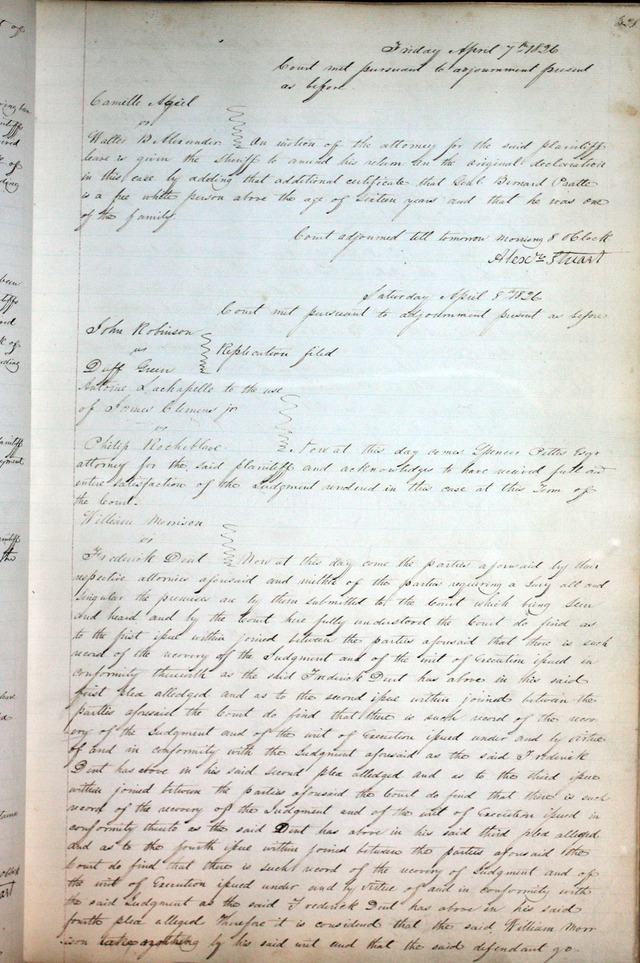 Friday April 7th 1826
Court met pursuant to adjournment present
as before
Camelle
vs
Walter B Alexander On motion of the attorney for the said plaintiff
leave is given the Sheriff to amend his return on the original declaration
in this case by adding that additional certificate that Genl. Bernard Pratte
is a free white person above the age of sixteen years and that he was one
of the family
Court adjourned till tomorrow morning 8 OClock
Alexr. Stuart
Saturday April 8th 1826
Court met pursuant to adjournment present as before
John Robinson
vs Replication filed
Duff Green
Antoine Lachapelle to the use
of James Clemens jr
vs
Philip Rocheblave Now at this day comes Spencer Pettis Esqr
attorney for the said plaintiff and acknowledges to have received full and
entire satisfaction of the Judgment rendered in this case at this Term of
the Court.
William Morrison
vs
Frederick Dent Now at this day come the parties aforesaid by their
respective attornies aforesaid and neither of the parties requiring a Jury all and
singular the premises are by them submitted to the Court which being seen
and heard and by the Court here fully understood the Court do find as
to the first issue within joined between the parties aforesaid that there is such
record of the recovery of the Judgment and of the writ of Execution issued in
conformity therewith as the said Frederick Dent has above in his said
first plea alledged and as to the second issue within joined between the
parties aforesaid the Court do find that there is such record of the recov
ery of the Judgment and of the writ of Execution issued under and by virtue
of and in conformity with the Judgment aforesaid as the said Frederick
Dent has above in his said second plea alledged and as to the third issue
within joined between the parties aforesaid the Court do find that there is such
record of the recovery of the Judgment and of the writ of Execution issued in
conformity thereto as the said Dent has above in his said third plea alledged
and as to the fourth issue within joined between the parties aforesaid the
Court do find that there is such record of the recovery of Judgment and of
the writ of Execution issued under and by virtue of and in conformity with
the said Judgment as the said Frederick Dent has above in his said
fourth plea alleged Therefore it is considered that the said William Morr
ison take nothing by his said writ and that the said defendant go